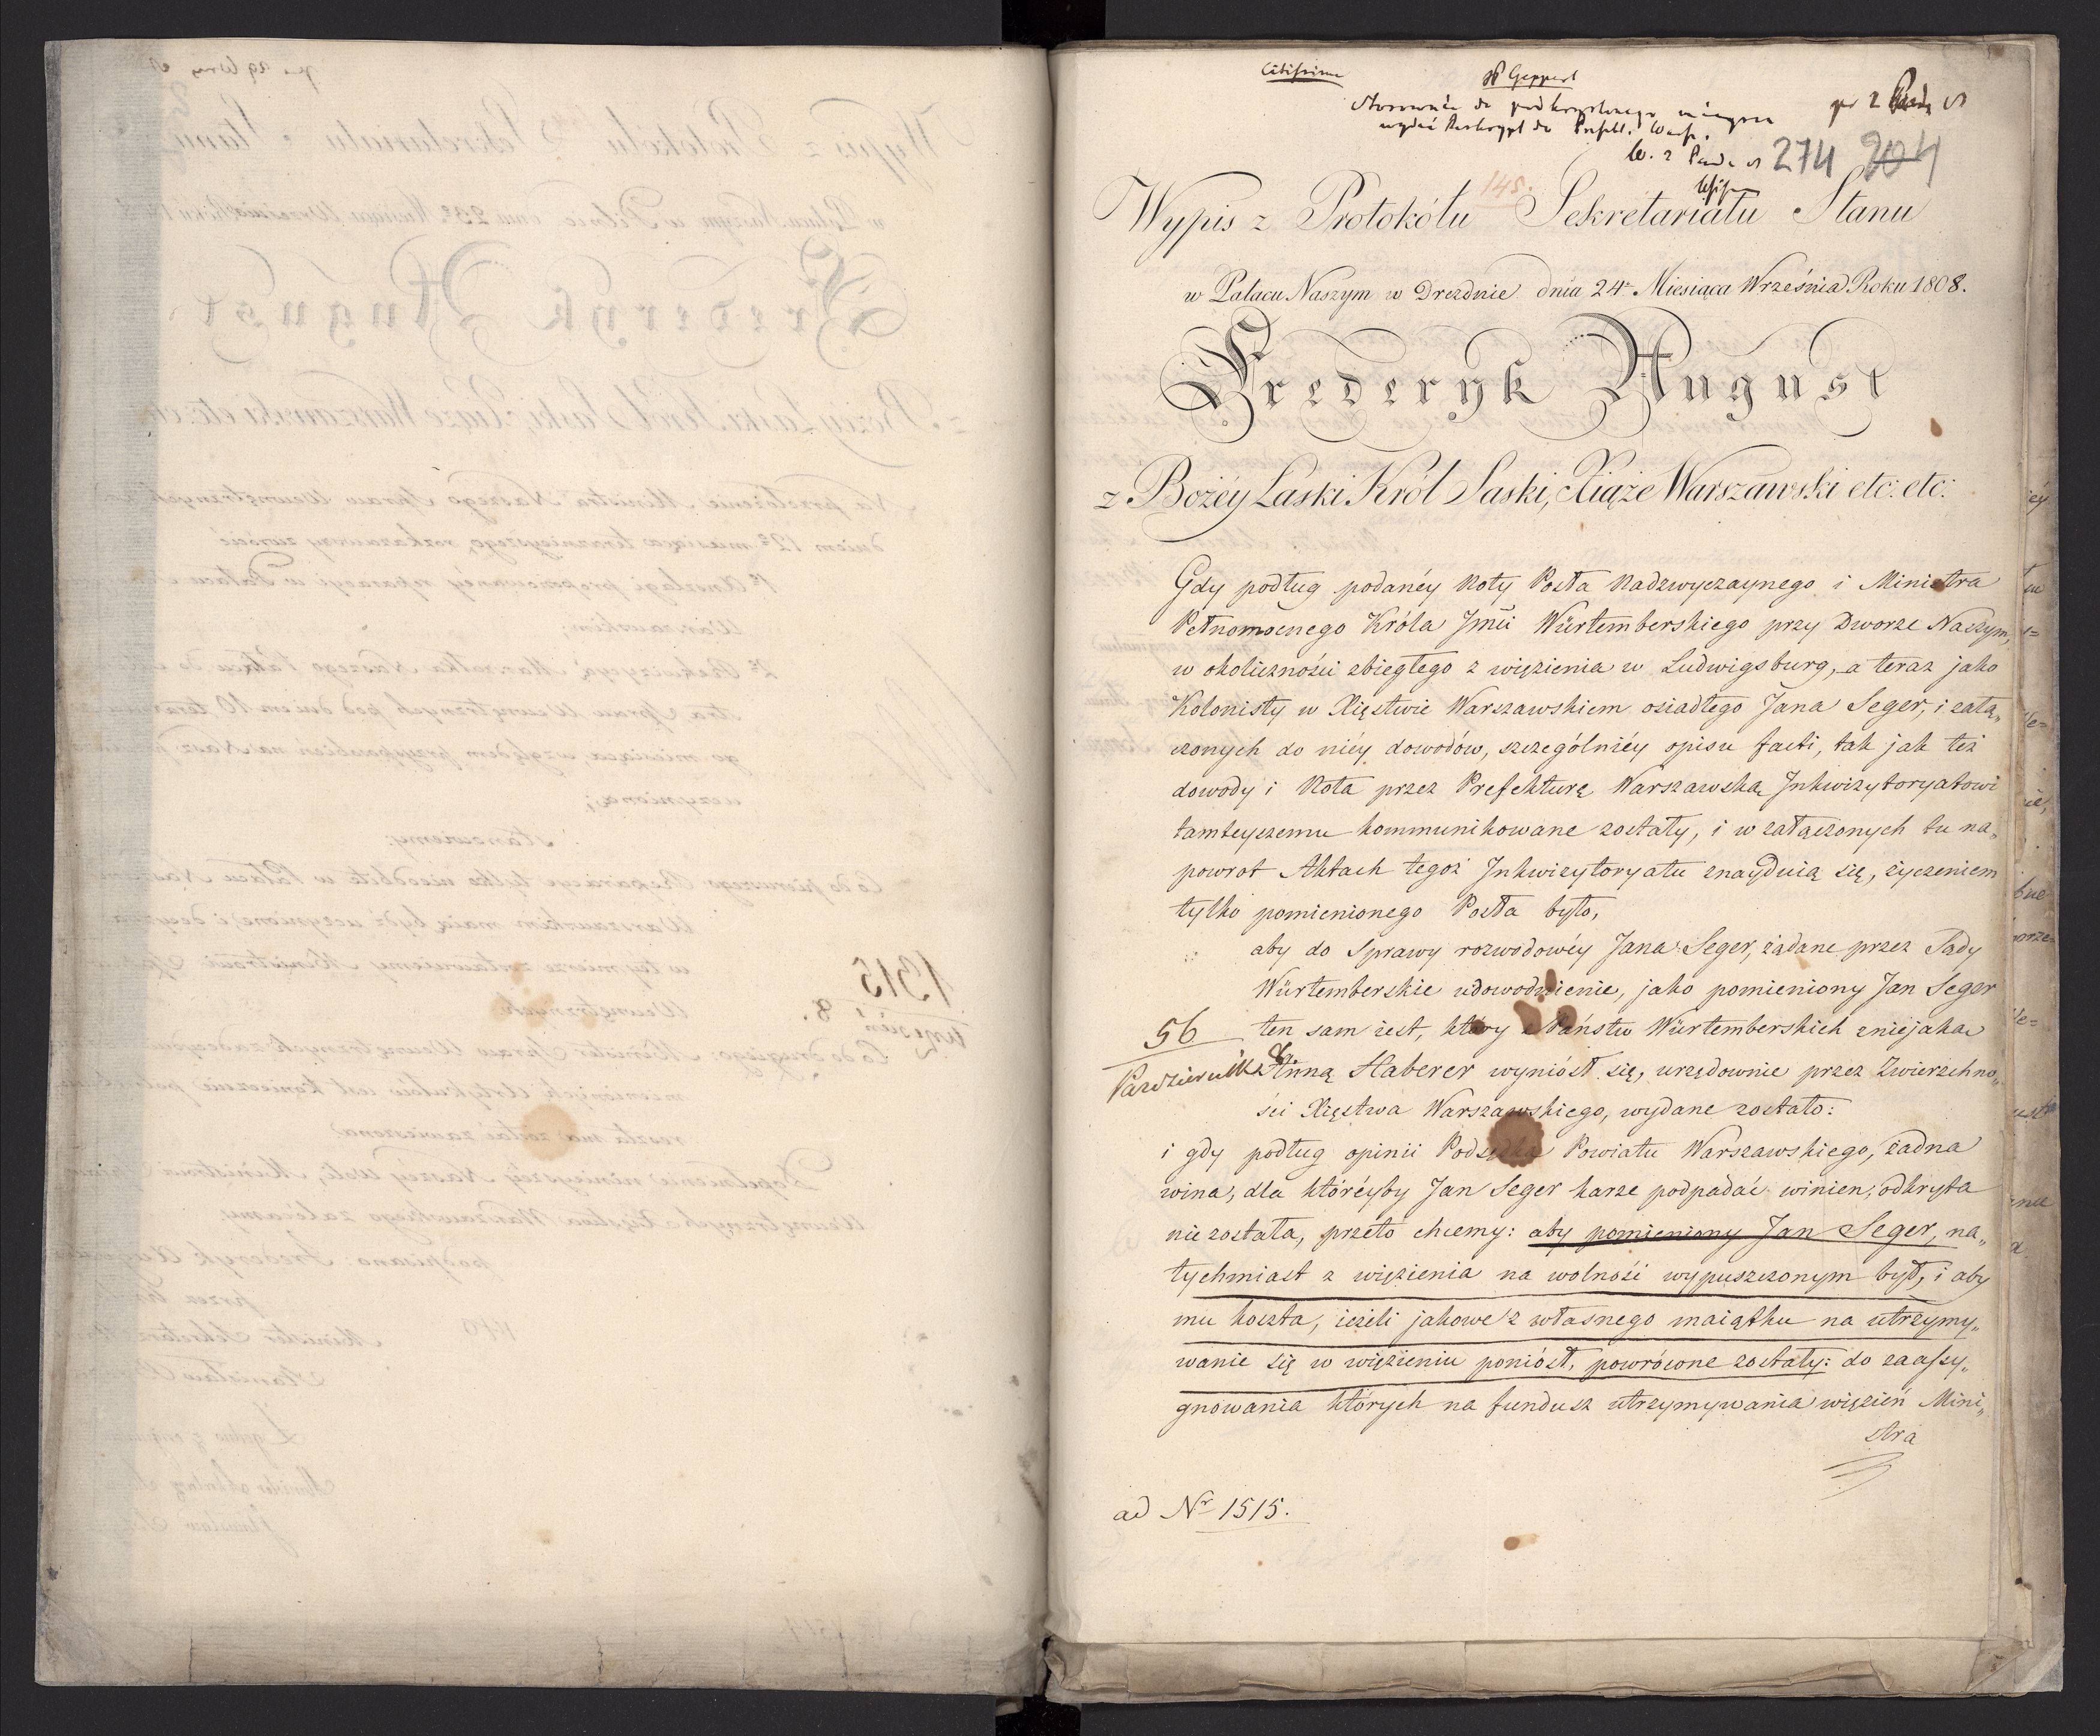 Citissime
H Geppert
Stosownie do podkreślonego
wydać Reskrypt do Prefekt. Warsz.
274 204
145.
Wypis z Protokółu Sekretariatu Stanu
w Pałacu Naszym w Dreźdnie dnia 24º Miesiąca Września Roku 1808.
Frederyk August
z Bożéy Łaski Król Saski, Xiąże Warszawski etc: etc:
Gdy podług podanéy Noty Posła Nadzwyczaynego i Ministra
Pełnomocnego Króla Jmći Würtemberskiego przy Dworze Naszym,
w okoliczności zbiegłego z więzienia w Ludwigsburg, a teraz jako
Kolonisty w Xięstwie Warszawskiem osiadłego Jana Seger, i załą„
czonych do niéy dowodów, szczególniéy opisu facti, tak jak też
dowody i Nota przez Prefekturę Warszawską Jnkwizytoryatowi
tamteyszemu kommunikowane zostały, i w załączonych tu na„
powrot Aktach tegoż Jnkwizytoryatu znayduią się, życzeniem
tylko pomienionego Posła było,
aby do Sprawy rozwodowéy Jana Seger, żądane przez Sądy
Würtemberskie udowodnienie, jako pomieniony Jan Seger
ten sam iest, który z Państw Würtemberskich z niejaką
Anną Haberer wyniósł się, urzędownie przez Zwierzchno„
ści Xięstwa Warszawskiego, wydane zostało:
56
Pazdziernik 8.
i gdy podług opinii Podsędka Powiatu Warszawskiego, żadna
wina, dla któréyby Jan Seger karze podpadać winien, odkryta
nie została, przeto chcemy: aby pomieniony Jan Seger, na„
tychmiast z więzienia na wolność wypuszczonym był, i aby
mu koszta, ieżeli jakowe z własnego maiątku na utrzymy„
wanie się w więzieniu poniósł, powrócone zostały: do zaassy„
gnowania których na fundusz utrzymywania więzień Mini„
stra
ad Nr 1515.